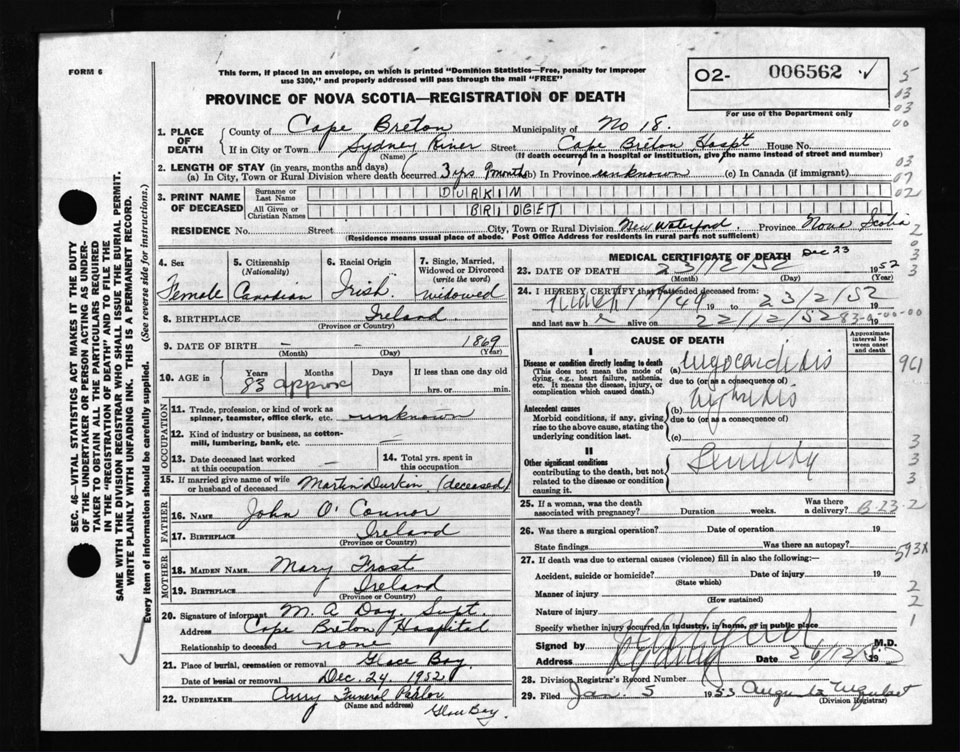 FORM 6
This form, if placed in an envelope, on which is printed "Dominion Statistics—Free, penalty for improper
use $300," and properly addressed will pass through the mail "FREE"
02- 006562
For use of the Department only
PROVINCE OF NOVA SCOTIA—REGISTRATION OF DEATH
1. PLACE OF DEATH
County of Cape Breton Municipality of No 18.
If in City or Town Sydney River Street Cape Breton Hospt House No.
(Name) (If death occurred in a hospital or institution, give the name instead of street and number)
2. LENGTH OF STAY (in years, months and days)
(a) In City, Town or Rural Division where death occurred 3 yrs 9 months (b) In Province unknown (c) In Canada (if immigrant)
3. PRINT NAME OF DECEASED
Surname or Last Name DURKIM
All Given or Christian Names BRIDGET
RESIDENCE No. Street City, Town or Rural Division New Waterford Province Nova Scotia
(Residence means usual place of abode. Post Office Address for residents in rural parts not sufficient)
4. Sex
Female
5. Citizenship
(Nationality)
Canadian
6. Racial Origin
Irish.
7. Single, Married,
Widowed or Divorced
(write the word)
widowed
8. BIRTHPLACE Ireland
(Province or Country)
9. DATE OF BIRTH — — 1869
(Month) (Day) (Year)
10. AGE in Years Months Days If less than one day old
83 approx hrs. or min.
OCCUPATION
11. Trade, profession, or kind of work as
spinner, teamster, office clerk, etc. unknown
12. Kind of industry or business, as cotton-
mill, lumbering, bank, etc. —
13. Date deceased last worked
at this occupation —
14. Total yrs. spent in
this occupation
15. If married give name of wife
or husband of deceased Martin Durkin (deceased)
FATHER
16. NAME John O'Connor
17. BIRTHPLACE Ireland
(Province or Country)
MOTHER
18. MAIDEN NAME Mary Frost
19. BIRTHPLACE Ireland
(Province or Country)
20. Signature of informant M. A Day. Supt.
Address Cape Breton Hospital
Relationship to deceased none
21. Place of burial, cremation or removal Glace Bay
Date of burial or removal Dec. 24, 1952
22. UNDERTAKER Curry Funeral Parlor
(Name and address)
Glace Bay.
MEDICAL CERTIFICATE OF DEATH
Dec 23
23. DATE OF DEATH 23/12/52 1952
(Month) (Day) (Year)
24. I HEREBY CERTIFY that I attended deceased from:
19 to 23/2/52
and last saw h alive on 22/12/52 19
83-9-00-00
CAUSE OF DEATH
Approximate
interval between
onset
and death
I
Disease or condition directly leading to death
(This does not mean the mode of
dying, e.g., heart failure, asthenia,
etc. It means the disease, injury, or
complication which caused death.)
(a) Myocarditis
due to (or as a consequence of)
Antecedent causes
Morbid conditions, if any, giving
rise to the above cause, stating the
underlying condition last.
(b) Nephritis
due to (or as a consequence of)
(c)
II
Other significant conditions
contributing to the death, but not
related to the disease or condition
causing it.
Senility
25. If a woman, was the death
associated with pregnancy? Duration weeks. Was there
a delivery? B-23-2
26. Was there a surgical operation? Date of operation 19
State findings Was there an autopsy?
27. If death was due to external causes (violence) fill in also the following:—
Accident, suicide or homicide? Date of injury 19
(State which)
Manner of injury
(How sustained)
Nature of injury
Specify whether injury occurred in industry, in home, or in public place
Signed by M.D.
Address Sydney Date 19
28. Division Registrar's Record Number
29. Filed Jan. 5 1953
(Division Registrar)
SEC. 46—VITAL STATISTICS ACT MAKES IT THE DUTY
OF THE UNDERTAKER OR PERSON ACTING AS UNDER-
TAKER TO OBTAIN ALL THE PARTICULARS REQUIRED
IN THE "REGISTRATION OF DEATH" AND TO FILE THE
SAME WITH THE DIVISION REGISTRAR WHO SHALL ISSUE THE BURIAL PERMIT.
WRITE PLAINLY WITH UNFADING INK. THIS IS A PERMANENT RECORD.
Every item of information should be carefully supplied. (See reverse side for instructions.)
5
03
03
00
03
07
02
2
0
3
3
961
3
3
3
593X
2
2
1